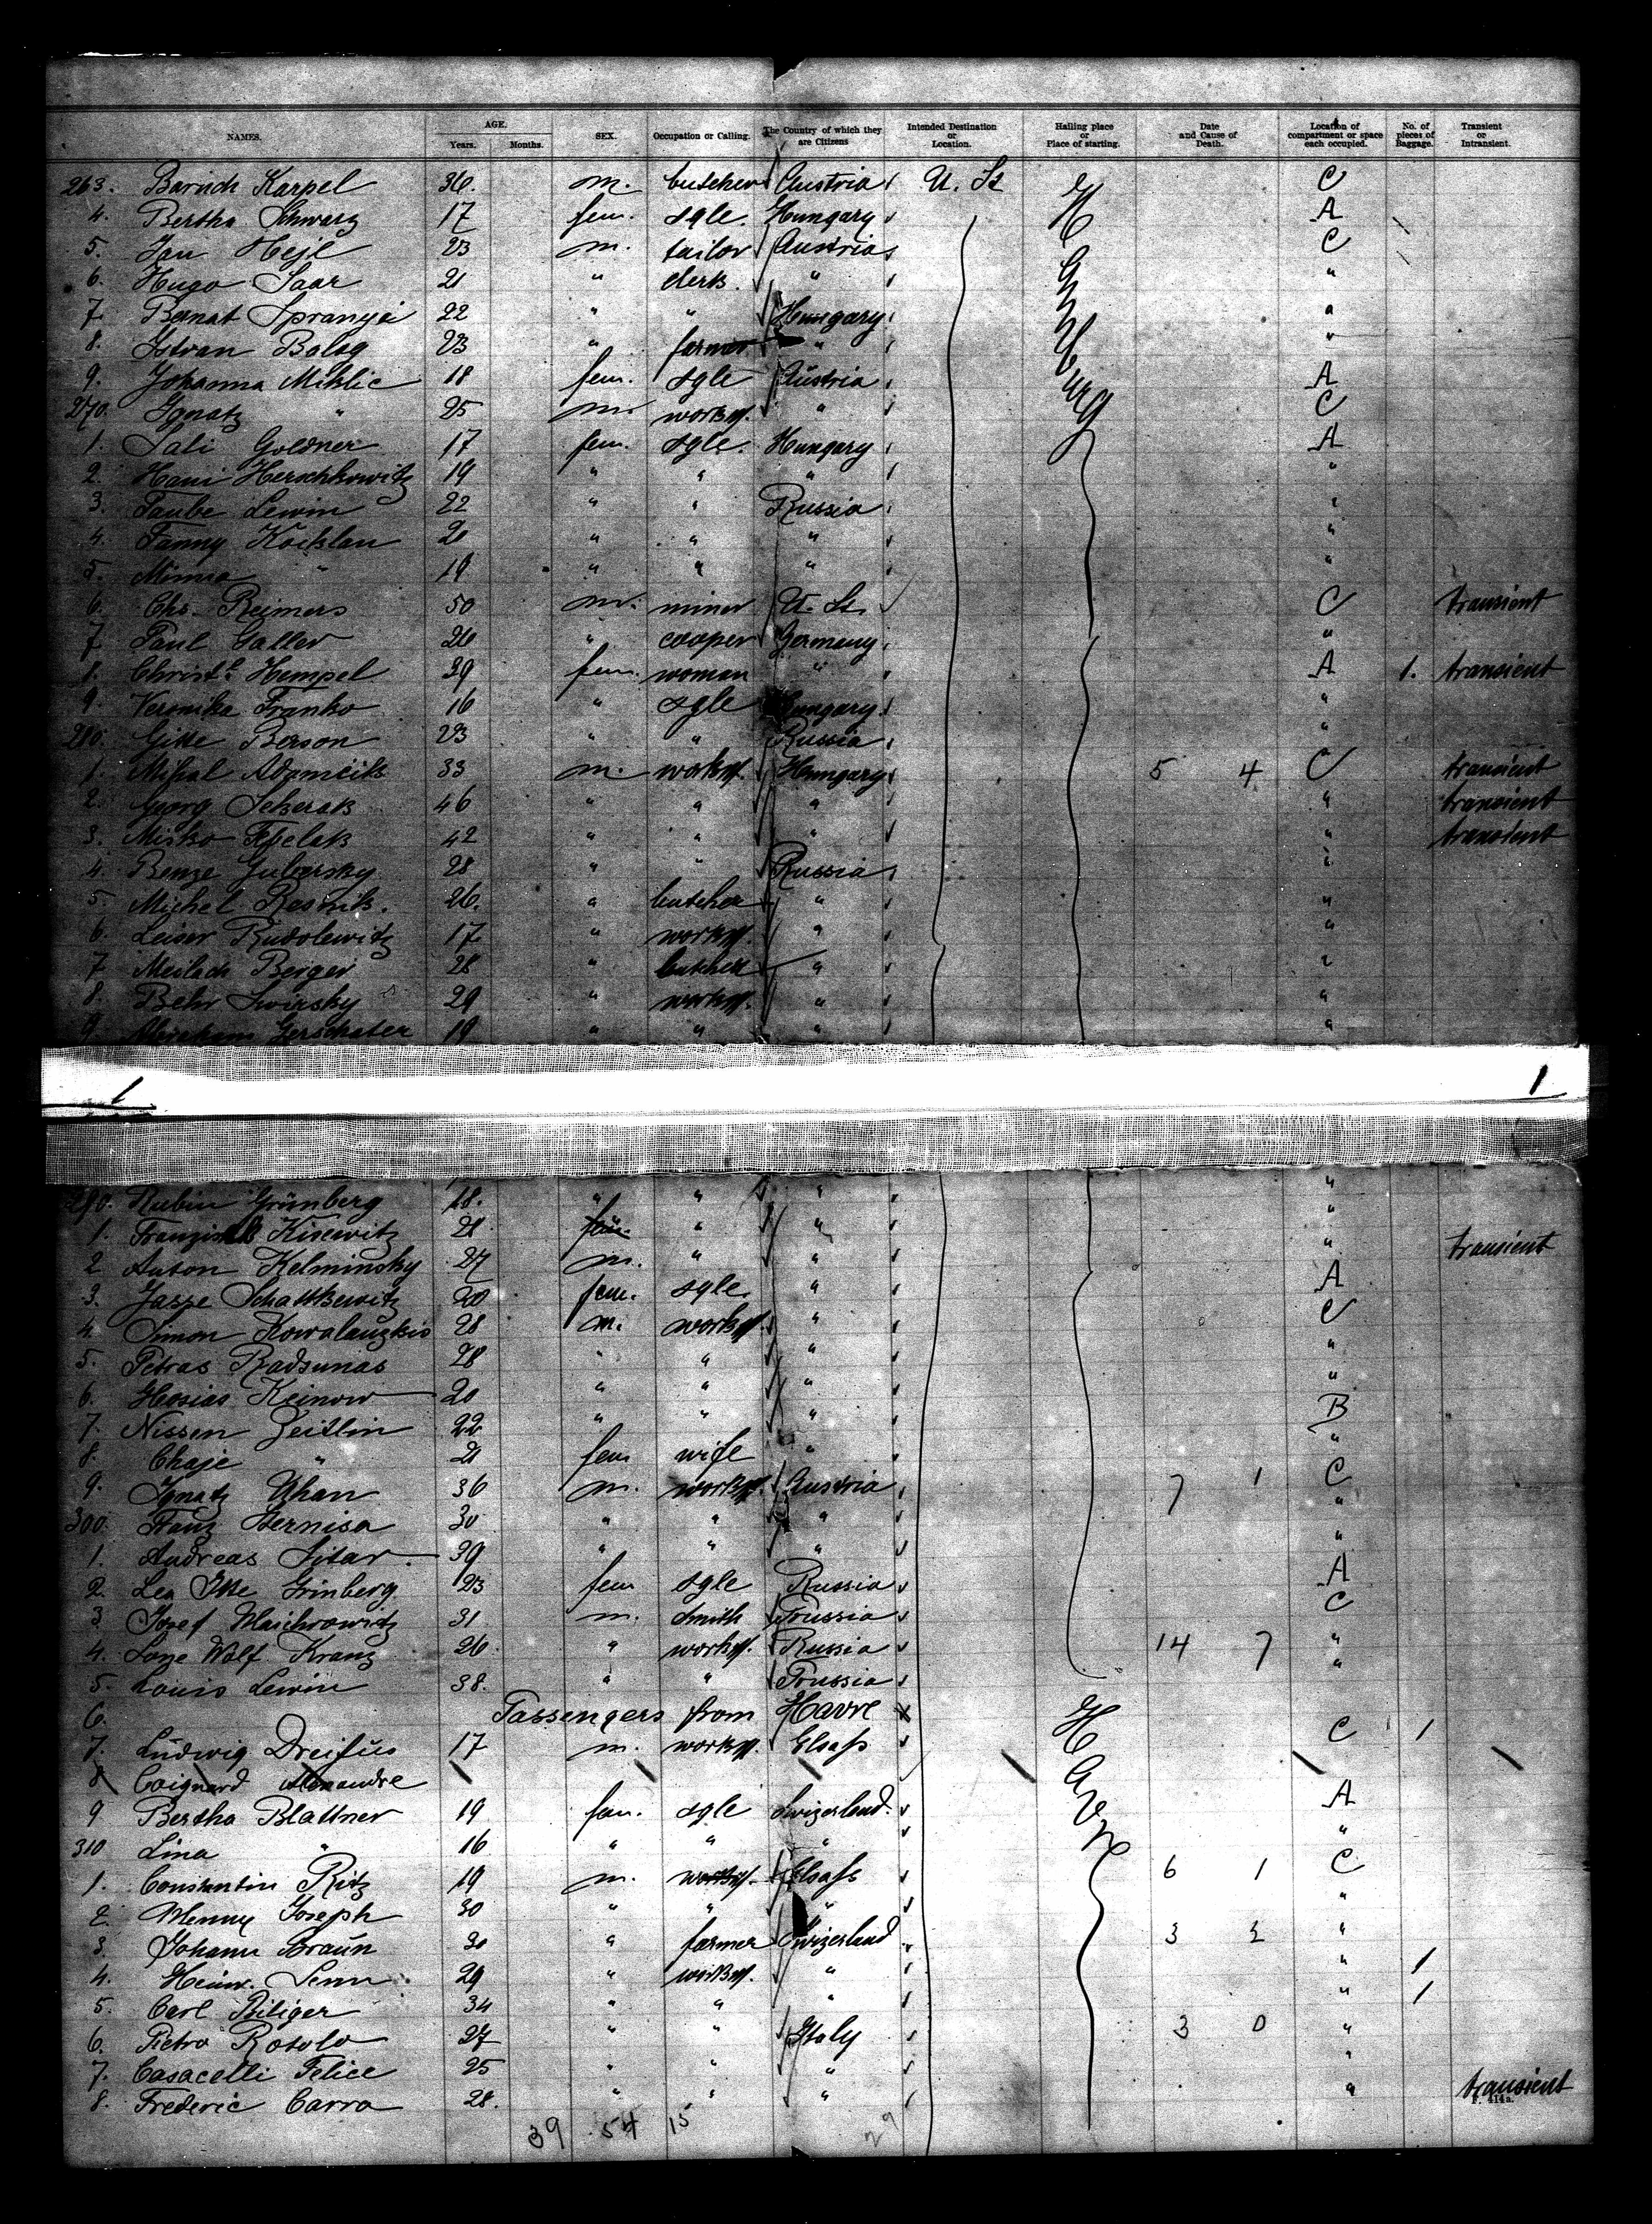 NAMES. AGE. Years. Months. SEX. Occupation or Calling. The Country of which they are Citizens Intended Destination or Location. Hailing place or Place of starting. Date and Cause of Death. Location of compartment or space each occupied. No. of pieces of Baggage. Transient or Intransient.
263. Baruch Karpel 36. m. butcher Austria U. St C
4. Bertha Schwarz 17 fem. sgle Hungary A
5. Jan Hejl 23 m. tailor Austria C
6. Hugo Saar 21 " clerk. " "
7. Bernat 22 " " Hungary "
8. Istvan Balog 23 " farmer " "
9. Johanna Miklic 18 fem. sgle Austria A
270. Ignatz " 25 m. workm. " C
1. Sali Goldner 17 fem. sgle. Hungary A
2. Hani Herschkowitz 19 " " " "
3. Taube Lewin 22 " " Russia "
4. Fanny 20 " " " "
5. Minna " 19 " " " "
6. Chs. Reimers 50 m. miner U. St. C transient
7. Paul Galler 26 " cooper Germany "
8. Christe Hempel 39 fem. woman " A 1. transient
9. Veronika Franko 16 " sgle Hungary "
280. Gitte Berson 23 " " Russia "
1. Mihal Adamcik 33 m. workm. Hungary 5 4 C transient
2. Georg Sekerak 46 " " " " transient
3. Misko 42 " " " " transient
4. Benze 28 " " Russia "
5. Michel Resnik. 26. " butcher " "
6. Leiser Rudolewitz 17 " workm. " "
7. Meilach Berger 28 " butcher " "
8. Behr Swirsky 29 " workm. " "
9. Abraham Gerschater 19 " " " "
1 1
290. Rubin Grünberg 18. " " " "
1. Kisewitz 21 fem. " " " transient
2 Anton Kelminsky 27 m. " " "
3. Jaspe Schattkewitz 20 fem. sgle. " A
4. Simon 28 m. workm. " C
5. Petras Radsunas 28 " " " "
6. Hosias Keinow 20 " " " "
7. Nissen Zeitlin 22 " " " B
8. Chaje " 21 fem wife " "
9. Ignatz 36 m. workm. Austria 7 1 C
300. Franz Sternisa 30 " " " "
1. Andreas Sitar. 39 " " " "
2. Lea Itte Grinberg. 23 fem sgle Russia A
3 Josef 31 m. smith Prussia C
4. Wolf Kranz 26 " workm. Russia 14 7 "
5. Louis Lewin 38. " " Prussia "
6. Passengers from Havre
7. Ludwig Dreifus 17 m. workm. Elsass C 1
8 Coignard Alexandre
9 Bertha Blattner 19 fem. sgle Swizerland. A
310 Lina " 16 " " " "
1. Constantin Ritz 19 m. workm. Elsass 6 1 C
2. Joseph 30 " " " "
3. Johann Braun 30 " farmer Swizerland 3 2 "
4. Heinr. Senn 29 " workm. " " 1
5. Carl Biliger 34 " " " " 1
6. Pietro Rotolo 27 " " Italy 3 0 "
7. Casacelli Felice 25 " " " "
8. Frederic Carra 28. " " " " transient
F. 414a.
39 54 15 29